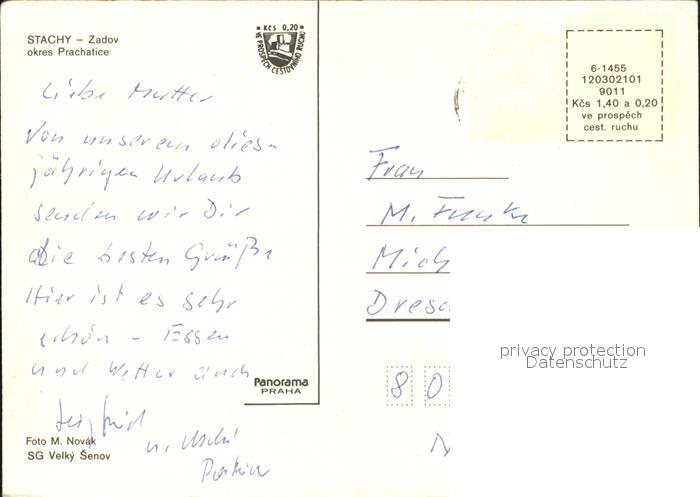 STACHY – Zadov
okres Prachatice
Kčs 0,20
VE PROSPĚCH CESTOVNÍHO RUCHU
6-1455
120302101
9011
Kčs 1,40 a 0,20
ve prospěch
cest. ruchu
Liebe Mutter
Von unserem dies-
jährigen Urlaub
senden wir Dir
die besten Grüße
Hier ist es sehr
schön – Essen
und Wetter auch
Siegfried
u. Uschi
Frau
M. Funke
Mich
Dresd
80
privacy protection
Datenschutz
Panorama
PRAHA
Foto M. Novák
SG Velký Šenov